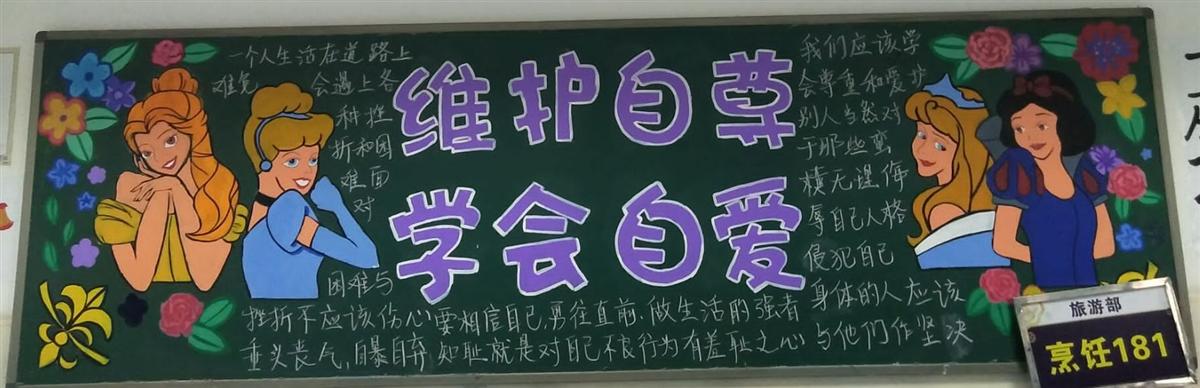 维护自尊
学会自爱
一个人生活在道路上
难免 会遇上各
种挫
折和困
难面
对
困难与
挫折不应该伤心要相信自己,勇往直前,做生活的强者
垂头丧气,自暴自弃 知耻就是对自己不良行为有羞耻之心
我们应该学
会尊重和爱护
别人当然对
于那些蛮
横无理侮
辱自己人格
侵犯自己
身体的人应该
与他们作坚决
旅游部
烹饪181